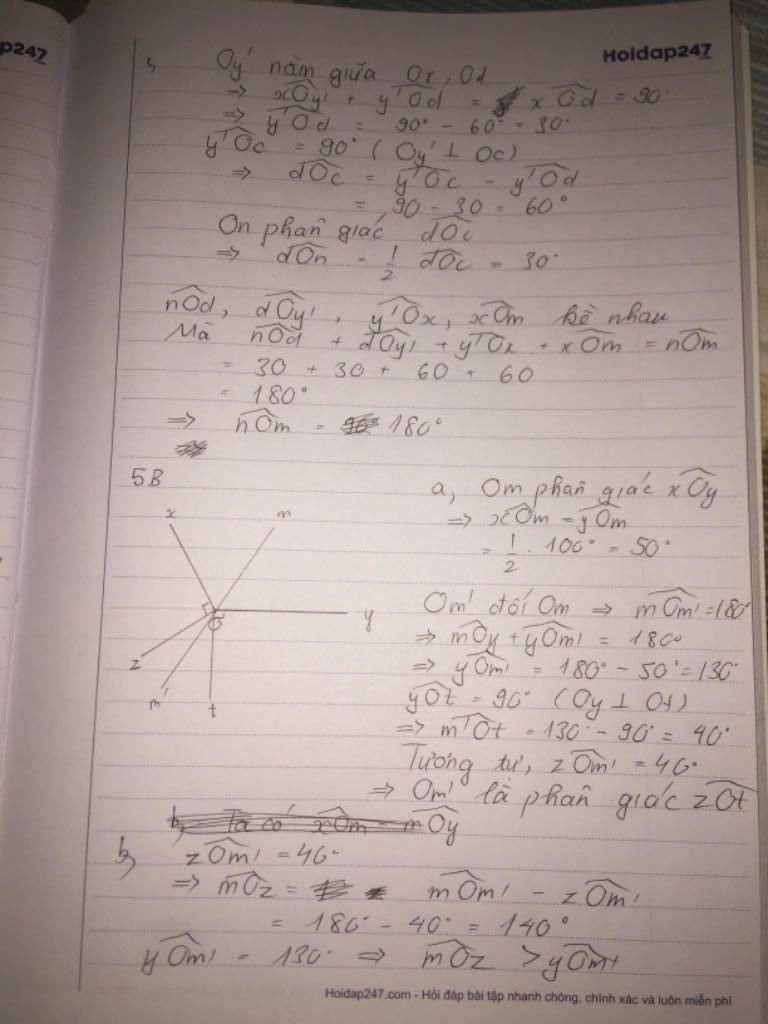 p247
Hoidap247
Oy' nằm giữa Ox, Od
=> xOy' + y'Od = xOd = 90°
=> y'Od = 90° - 60° = 30°
y'Oc = 90° (Oy' ⊥ Oc)
=> dOc = y'Oc - y'Od
= 90 - 30 = 60°
On phân giác dOc
=> dOn = 1/2 dOc = 30°
nOd, dOy', y'Ox, xOm kề nhau
Mà nOd + dOy' + y'Ox + xOm = nOm
= 30 + 30 + 60 + 60
= 180°
=> nOm = 180°
5B
x
m
y
O
z
m'
t
a, Om phân giác xOy
=> xOm = yOm
= 1/2 . 100° = 50°
Om' đối Om => mOm' = 180°
=> mOy + yOm' = 180°
=> yOm' = 180° - 50° = 130°
yOt = 90° (Oy ⊥ Ot)
=> m'Ot = 130° - 90° = 40°
Tương tự, zOm' = 40°
=> Om' là phân giác zOt
b, Ta có xOm = mOy
b, zOm' = 40°
=> mOz = mOm' - zOm'
= 180° - 40° = 140°
yOm' = 130° => mOz > yOm'
Hoidap247.com - Hỏi đáp bài tập nhanh chóng, chính xác và luôn miễn phí